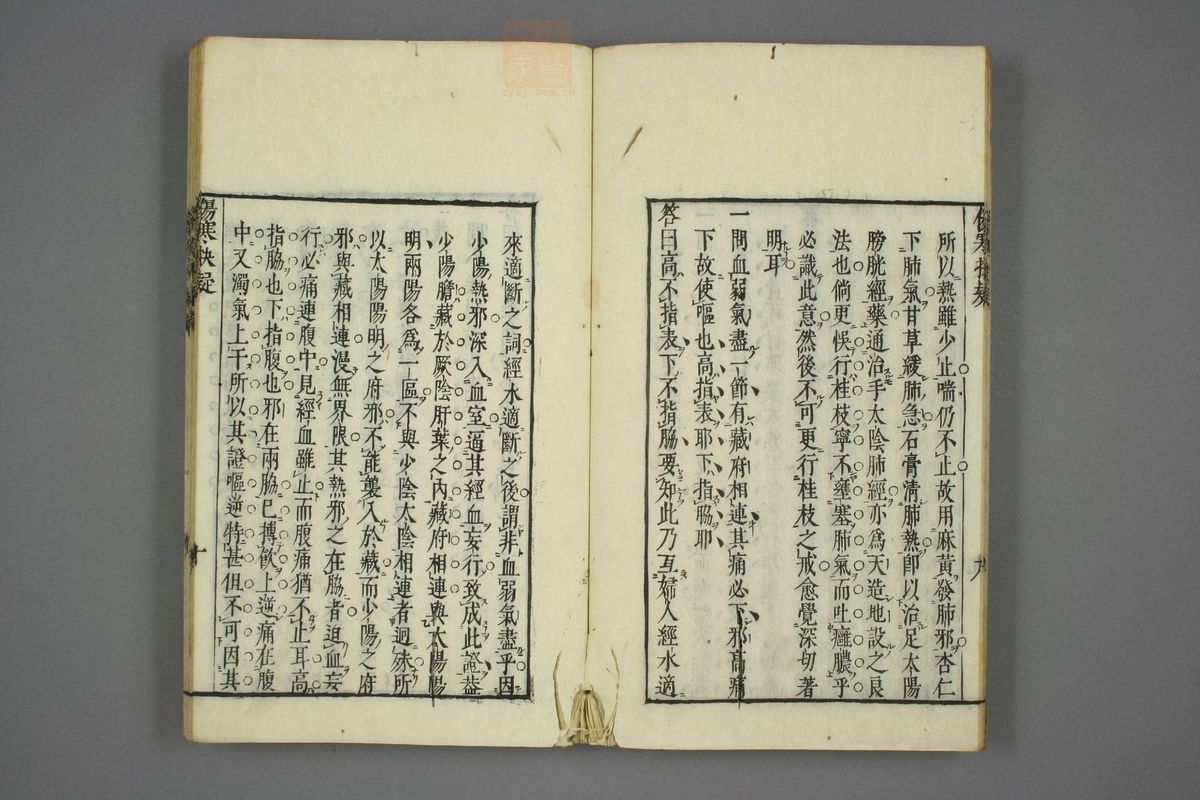 所以熱雖少止喘仍不止故用麻黃發肺邪杏仁
下肺氣甘草緩肺急石膏清肺熱卽以治足太陽
膀胱經藥通治手太陰肺經亦爲天造地設之良
法也倘更悞行桂枝寧不壅塞肺氣而吐癰膿乎
必識此意然後不可更行桂枝之戒愈覺深切著
明耳
一問血弱氣盡一節有藏府相連其痛必下邪高痛
下故使嘔也高指表耶下指脇耶
答曰高不指表下不指脇要知此乃互婦人經水適
九
來適斷之詞經水適斷之後謂非血弱氣盡乎因
少陽熱邪深入血室逼其經血妄行致成此證葢
少陽膽藏於厥陰肝葉之內藏府相連與太陽陽
明兩陽各爲一區不與少陰太陰相連者迥殊所
以太陽陽明之府邪不能襲入於藏而少陽之府
邪與藏相連漫無界限其熱邪之在脇者迫血妄
行必痛連腹中見經血雖止而腹痛猶不止耳高
指脇也下指腹也邪在兩脇已摶飮上逆痛在腹
中又濁氣上干所以其證嘔逆特甚但不可因其
傷寒抉疑
十
zysj.com.cn